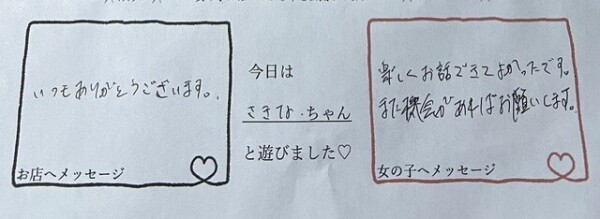 いつもありがとうございます。
お店へメッセージ
今日は
さきな.ちゃん
と遊びました♡
楽しくお話できてよかったです。
また機会があればお願いします。
女の子へメッセージ